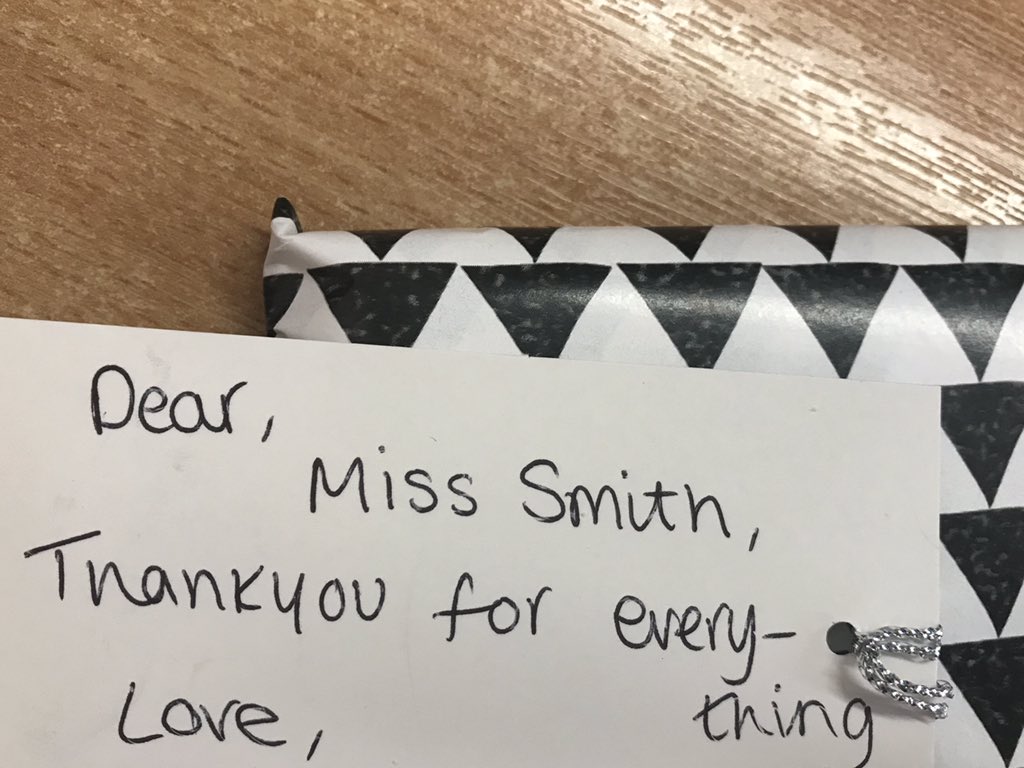 Dear,
Miss Smith,
Thankyou for every-
thing
Love,